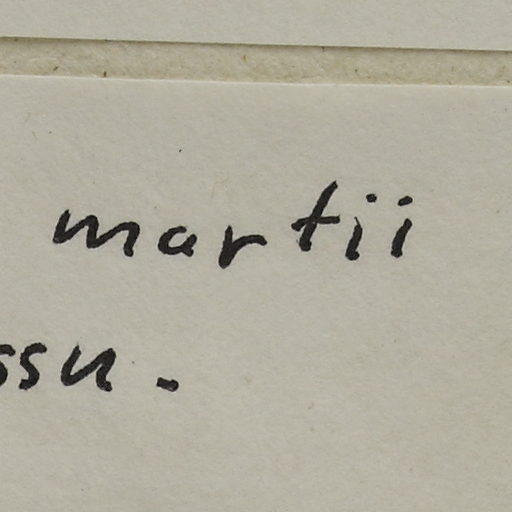 martii
ssu.